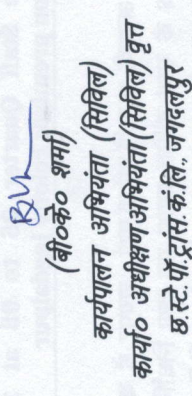 (बी०के० शर्मा)
कार्यपालन अभियंता (सिविल)
कार्या० अधीक्षण अभियंता (सिविल) वृत्त
छ.स्टे.पॉ.ट्रांस कं.लि. जगदलपुर